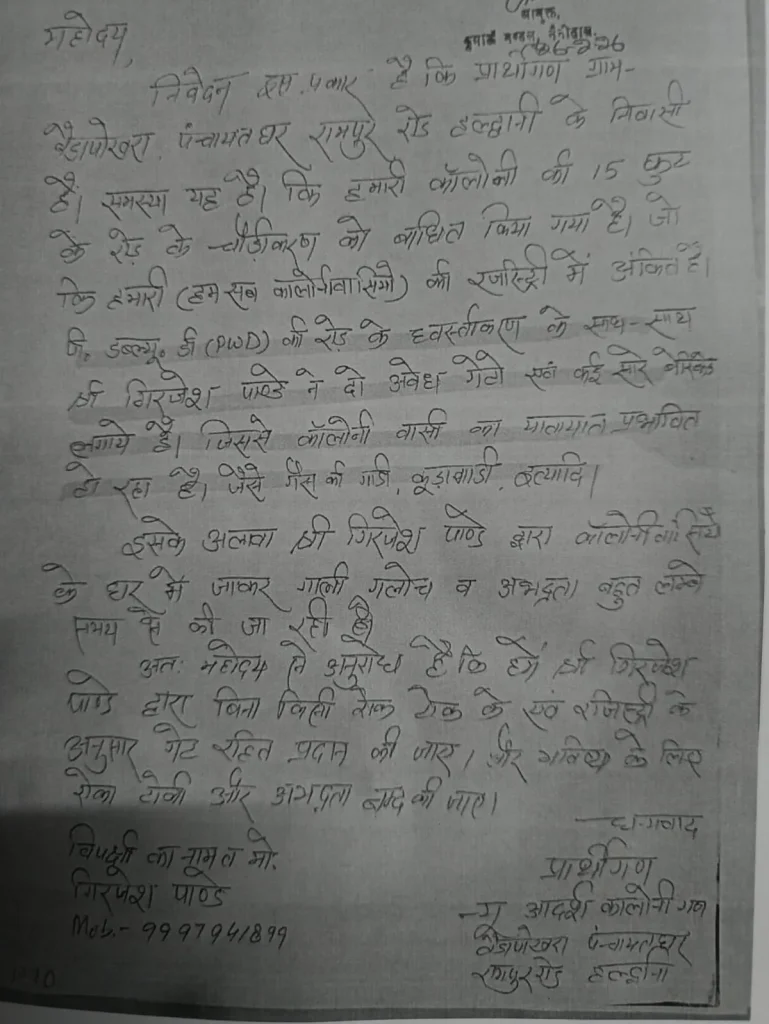 आयुक्त,
कुमाऊँ मण्डल, नैनीताल
महोदय,
निवेदन इस प्रकार है कि प्रार्थीगण ग्राम-
बेड़ापोखरा, पंचायतघर रामपुर रोड हल्द्वानी के निवासी
हैं। समस्या यह है। कि हमारी कॉलोनी की 15 फुट
के रोड़ के चौड़ीकरण को बाधित किया गया है। जो
कि हमारी (हम सब कालोनीवासियो) की रजिस्ट्री में अंकित है।
पी. डब्ल्यू. डी (PWD) की रोड़ के ध्वस्तीकरण के साथ-साथ
श्री गिरजेश पाण्डे ने दो अवैध गेटो एवं कई सारे बेरिकेड
लगाये है। जिससे कॉलोनी वासी का यातायात प्रभावित
हो रहा है। जैसे गैस की गाडी, कूड़ागाडी, इत्यादि।
इसके अलावा श्री गिरजेश पाण्डे द्वारा कॉलोनीवासियों
के घर में जाकर गाली गलोच व अभद्रता बहुत लम्बे
समय से की जा रही है।
अतः महोदय से अनुरोध है कि हमें श्री गिरजेश
पाण्डे द्वारा बिना किसी रोक टोक के एवं रजिस्ट्री के
अनुसार गेट रहित प्रदान की जाए। और भविष्य के लिए
रोका टोकी और अभद्रता बन्द की जाए।
धन्यवाद
विपक्षी का नाम व मो.
गिरजेश पाण्डे
Mob.- 9997941899
प्रार्थीगण
न्यू आदर्श कालोनी गण
बेड़ापोखरा पंचायतघर
रामपुर रोड हल्द्वानी